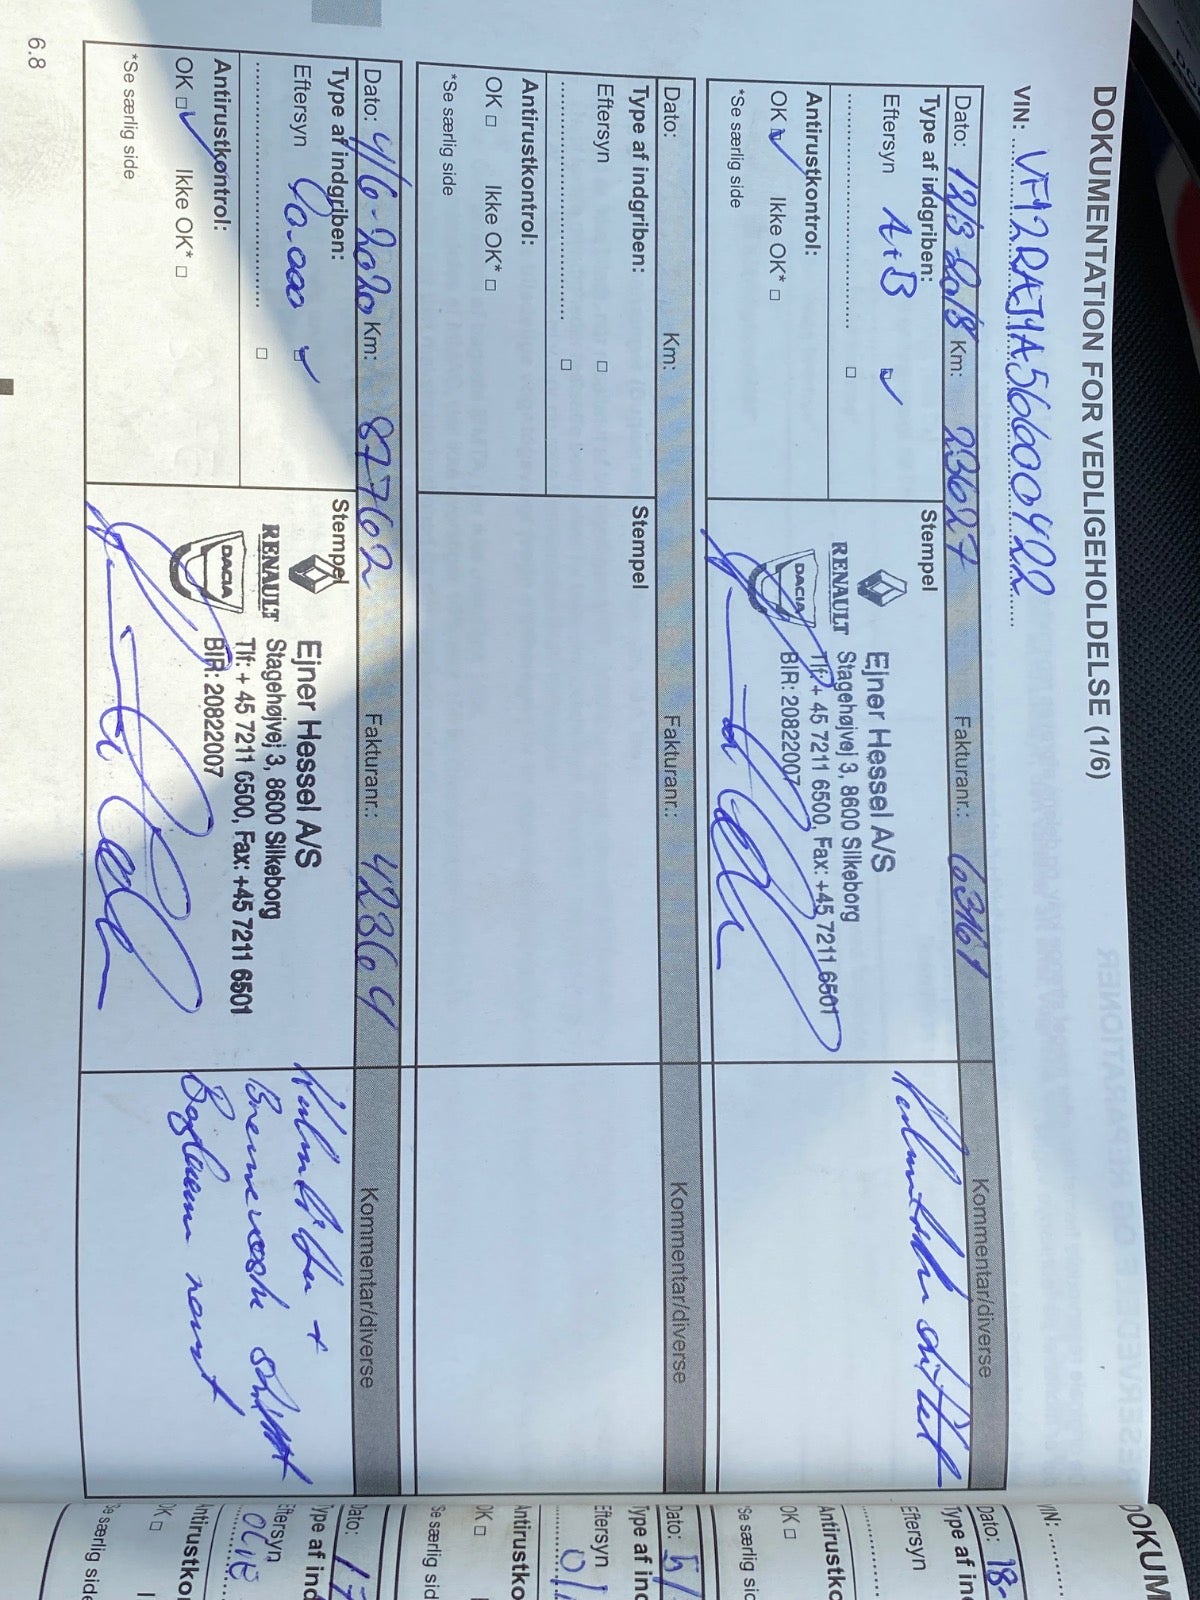 DOKUMENTATION FOR VEDLIGEHOLDELSE (1/6)
VIN: VF12RAJ1A56600422
Dato: 12/3-2018 Km: 23627 Fakturanr.: 63161 Kommentar/diverse
Type af indgriben:
Eftersyn A+B
Antirustkontrol:
OK Ikke OK*
*Se særlig side
Stempel
RENAULT
DACIA
Ejner Hessel A/S
Stagehøjvej 3, 8600 Silkeborg
Tlf: + 45 7211 6500, Fax: +45 7211 6501
BIR: 20822007
skiftet
Dato: Km: Fakturanr.: Kommentar/diverse
Type af indgriben:
Eftersyn
Antirustkontrol:
OK Ikke OK*
*Se særlig side
Stempel
Dato: 4/6-2020 Km: 87762 Fakturanr.: 42864 Kommentar/diverse
Type af indgriben:
Eftersyn 90.000
Antirustkontrol:
OK Ikke OK*
*Se særlig side
Stempel
RENAULT
DACIA
Ejner Hessel A/S
Stagehøjvej 3, 8600 Silkeborg
Tlf: + 45 7211 6500, Fax: +45 7211 6501
BIR: 20822007
+
Bremsevæske skiftet
renset
6.8
DOKUM
VIN:
Dato: 18-
Type af in
Eftersyn
Antirustko
OK
*Se særlig sid
Dato: 5/
Type af ind
Eftersyn
Antirustko
OK
*Se særlig sid
Dato: 17
Type af ind
Eftersyn
OLIE
Antirustko
OK
*Se særlig side